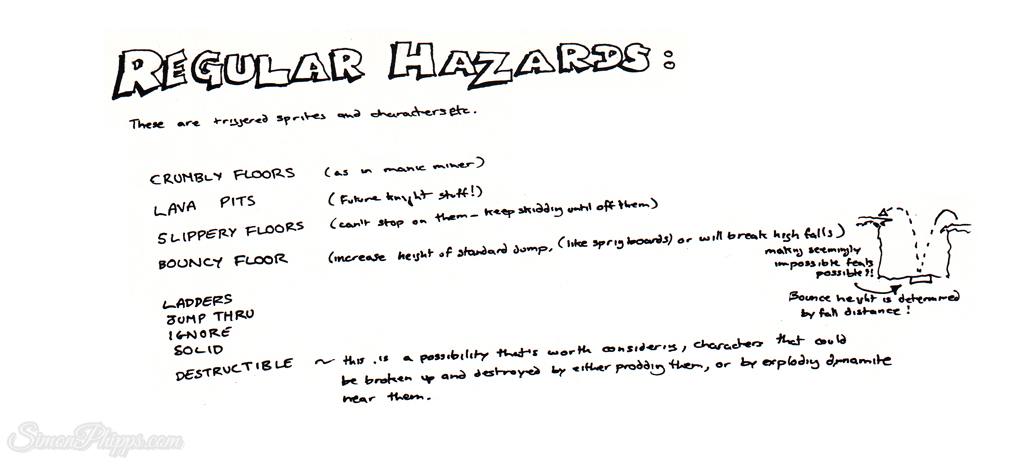 REGULAR HAZARDS:
These are triggered sprites and characters etc.
CRUMBLY FLOORS (as in manic miner)
LAVA PITS (Future knight stuff!)
SLIPPERY FLOORS (can't stop on them - keep skidding until off them)
BOUNCY FLOOR (increase height of standard jump, (like springboards) or will break high falls)
making seemingly
impossible feats
possible?!
Bounce height is determined
by fall distance!
LADDERS
JUMP THRU
IGNORE
SOLID
DESTRUCTIBLE ~ this is a possibility that's worth considering, characters that could
be broken up and destroyed by either prodding them, or by exploding dynamite
near them.
SimonPhipps.com